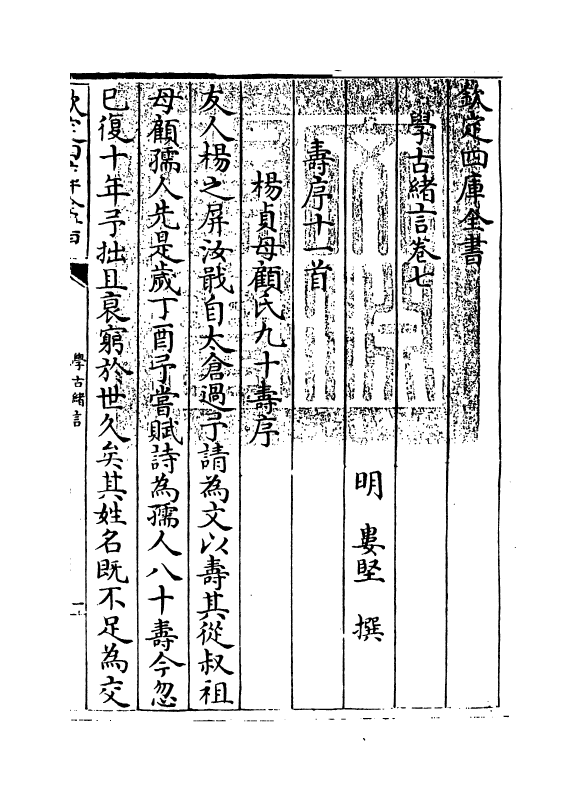 欽定四庫全書
學古緒言卷七
明 婁堅 撰
壽序十一首
楊貞母顧氏九十壽序
友人楊之屏汝戩自太倉過予請為文以壽其從叔祖
母顧孺人先是歲丁酉予嘗賦詩為孺人八十壽今忽
已復十年予拙且衰窮於世久矣其姓名既不足為交
學古緒言
一